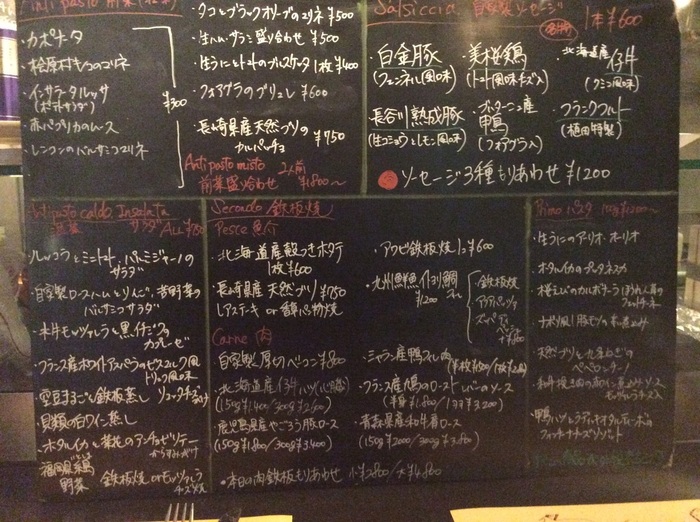 ・カポナータ
・インサラータルッサ
(ポテトサラダ)
・赤パプリカのムース
・レンコンのバルサミコマリネ
¥300
・タコとブラックオリーブのマリネ ¥500
・生ハム・サラミ盛り合わせ ¥500
・生うにとトマトのブルスケッタ 1枚 ¥400
・フォアグラのブリュレ ¥600
・長崎県産天然ブリの
カルパッチョ ¥750
Antipasto misto 2人前
前菜盛り合わせ ¥1800~
Salsiccia 自家製ソーセージ
1本 ¥600
・白金豚
(フェンネル風味)
・美桜鶏
(トマト風味チーズ入)
・北海道産 仔牛
(クミン風味)
・長谷川熟成豚
(生コショウとレモン風味)
・ブルターニュ産
鴨
(フォアグラ入)
・フランクフルト
(植田特製)
ソーセージ3種もりあわせ ¥1200
Antipasto caldo, Insalata
温菜 サラダ ALL ¥750
・ルッコラとミニトマト、パルミジャーノの
サラダ
・自家製ロースハムとりんご、吉野菜の
バルサミコサラダ
・水牛モッツァレラと黒イチジクの
カプレーゼ
・フランス産ホワイトアスパラのビスマルク風
トリュフ風味
・空豆まるごと鉄板蒸し リコッタチーズがけ
・貝類の白ワイン蒸し
・ホタルイカと菜花のアンチョビソテー
からすみがけ
・福岡県糸島
野菜 鉄板焼 or モッツァレラ
チーズ焼
Secondo 鉄板焼
Pesce 魚介
・北海道産殻つきホタテ
1枚 ¥600
・長崎県産 天然ブリ ¥950
レアステーキ or 香草パン粉焼
・アワビ鉄板焼 1コ ¥600
・九州鮮魚 イトヨリ鯛
¥1200
鉄板焼
アクアパッツァ
Carne 肉
・自家製厚切ベーコン ¥800
・北海道産仔牛ハツ(心臓)
(150g ¥1,400/300g ¥2,600)
・鹿児島県産やごろう豚ロース
(150g ¥1,800/300g ¥3,400)
・シャラン産鴨ムネ肉
・フランス産鳩のロースト レバーのソース
(半羽 ¥1,800/1羽 ¥3,200)
・青森県産和牛肩ロース
(150g ¥2000/300g ¥3,800)
・本日の肉鉄板もりあわせ 小 ¥2,800/大 ¥4,800
Primo パスタ
・生うにのアーリオ・オーリオ
・オタルイカのプッタネスカ
・桜えびのカルボナーラ ほうれん草の
フェットチーネ
・天然ブリと九条ねぎの
ペペロンチーノ